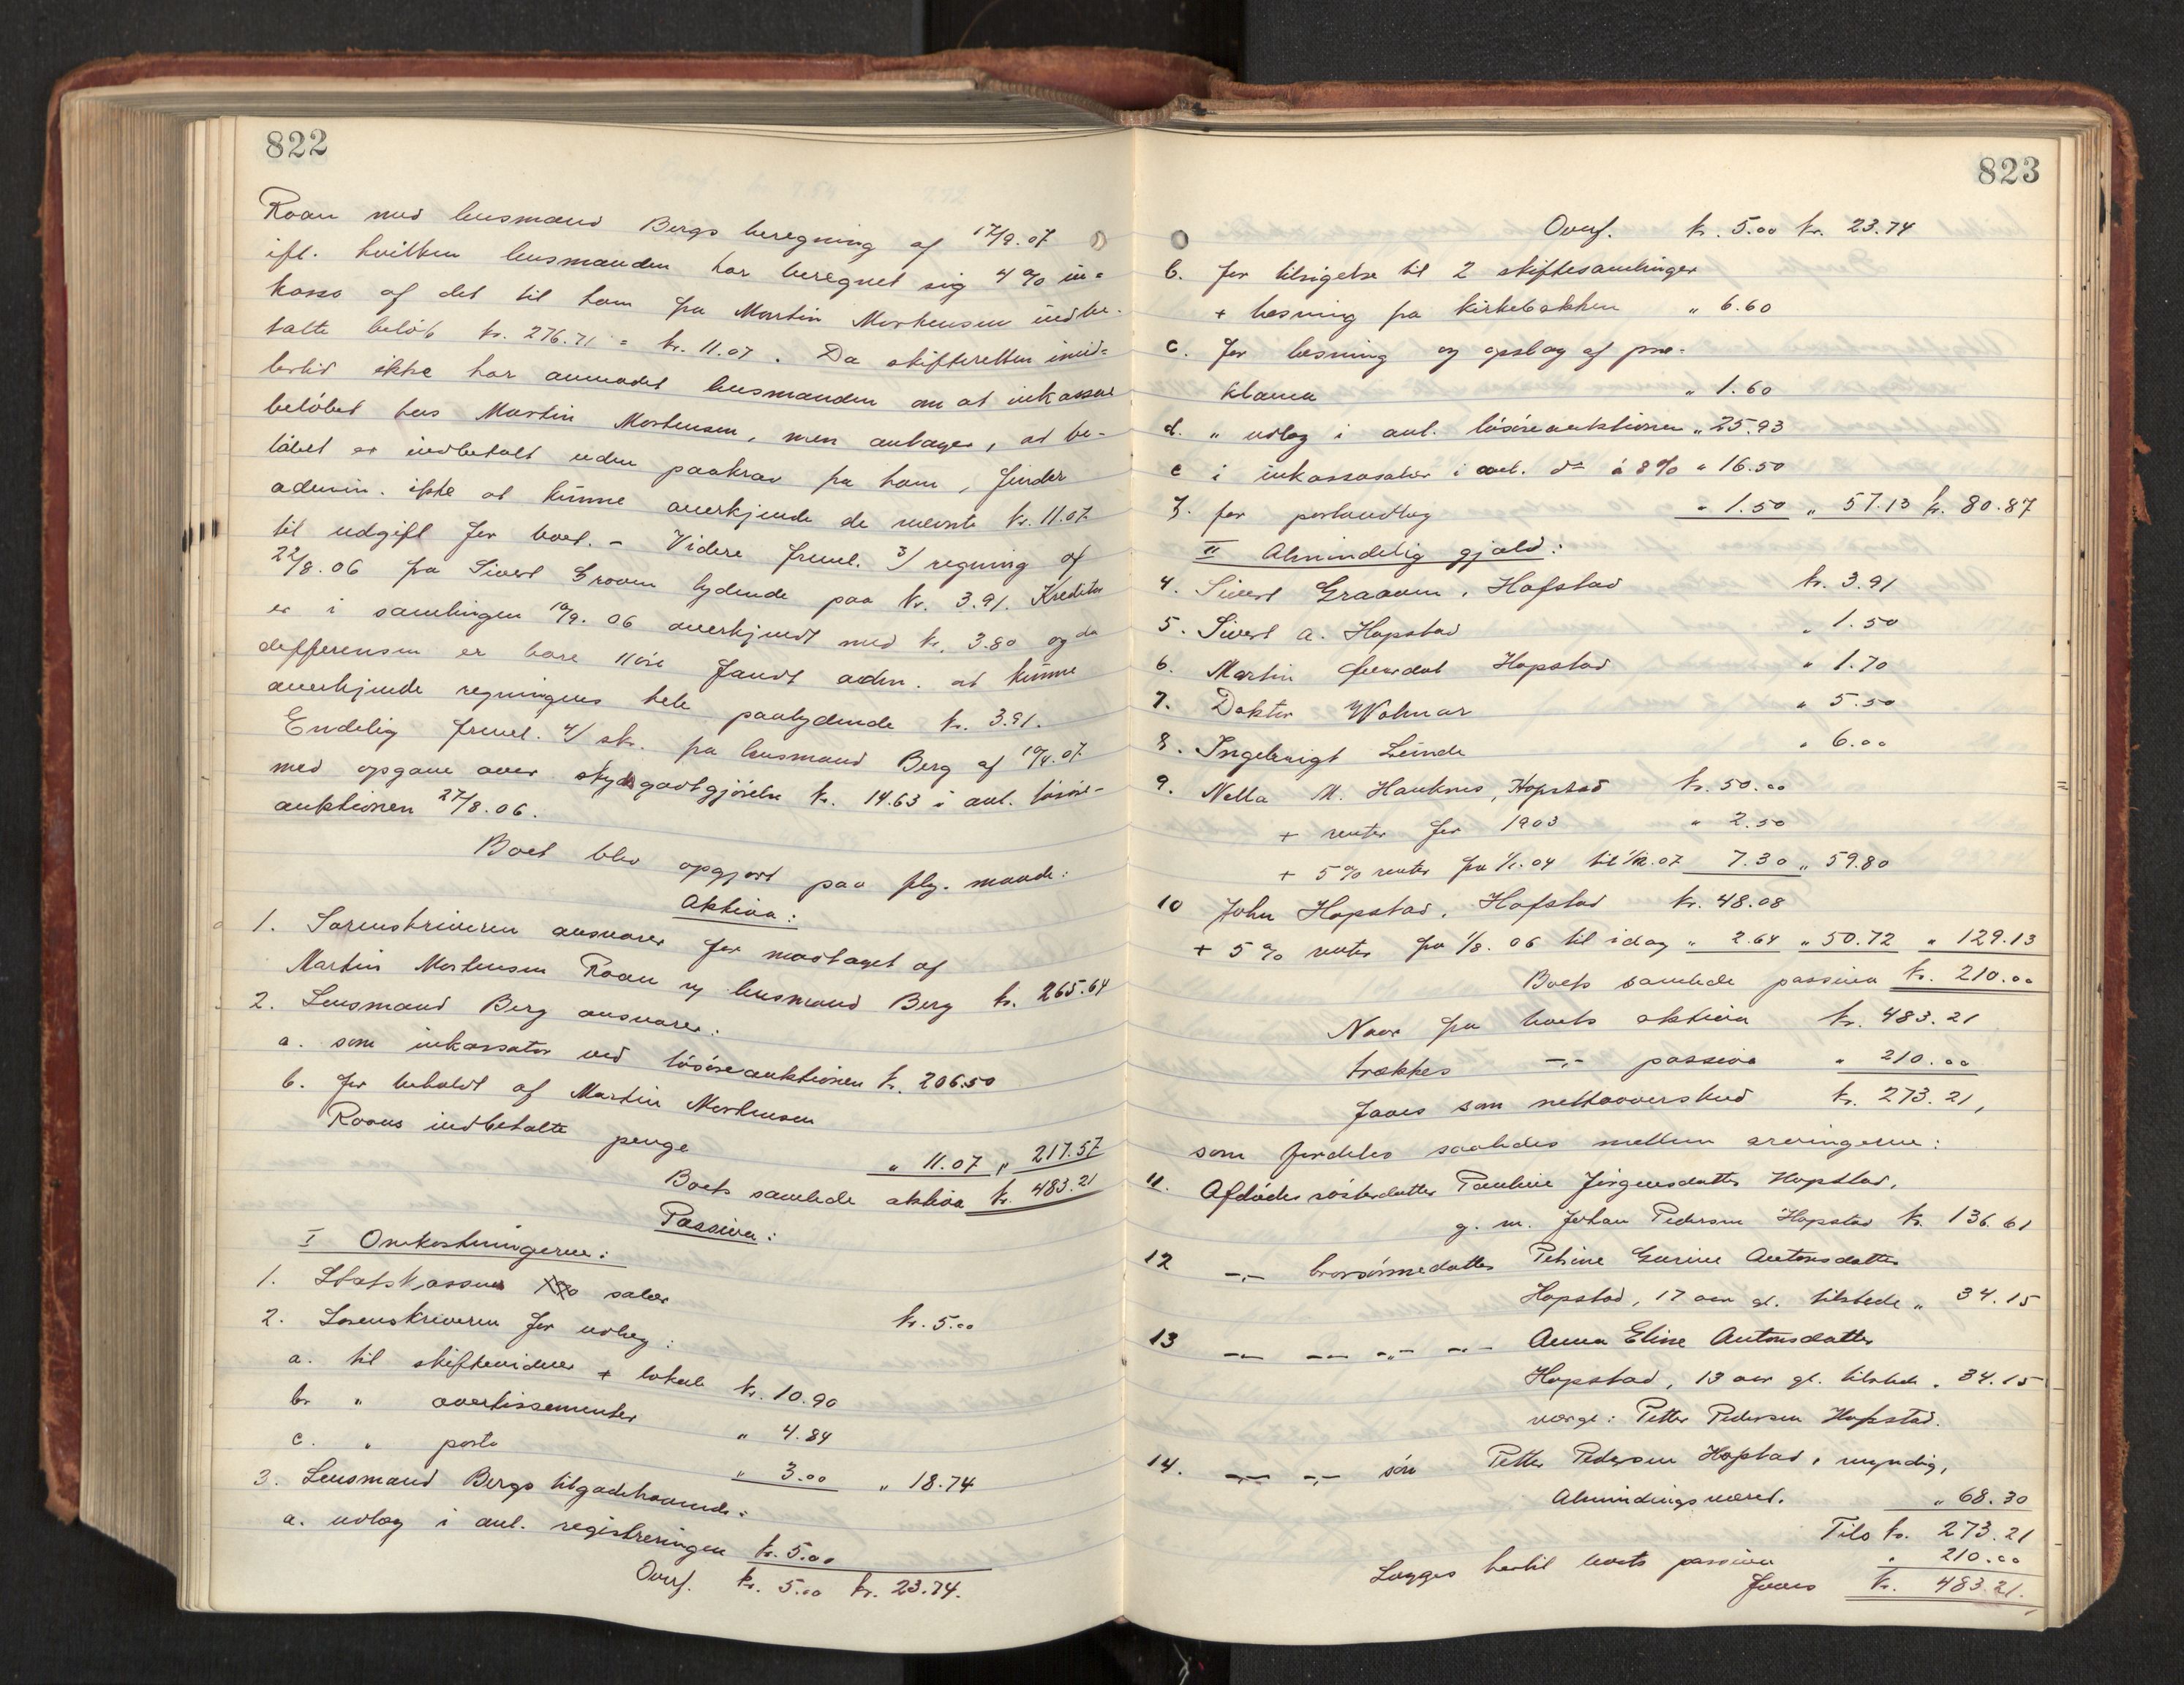 822
Roan med lensmand Bergs beregning af 17/9.07
ifl. hvilken lensmanden har beregnet sig 4% in=
kasso af det til ham fra Martin Mortensen indbe-
talte beløb kr. 276.71 = kr. 11.07. Da skifteretten imid=
lertid ikke har anmodet lensmanden om at inkassere
beløbet hos Martin Mortensen, men antager, at be-
løbet er indbetalt uden paakrav fra ham, finder
admin. ikke at kunne anerkjende de nævnte kr. 11.07
til udgift for boet. - Videre freml. 3/ regning af
22/8.06 fra Sivert Graaven lydende paa kr. 3.91. Kreditor
er i samlingen 10/9.06 anerkjendt med kr. 3.80 og da
defferensen er bare 11 øre fandt adm. at kunne
anerkjende regningens hele paalydende kr. 3.91.
Endelig freml. 4/ skr. fra lensmand Berg af 10/4.07
med opgave over skydsgodtgjørelse kr. 14.63 i anl. løsøre-
auktionen 27/8.06.
Boet blev opgjort paa flg. maade:
Aktiva:
1. Sorenskriveren ansvarer for modtaget af
Martin Mortensen Roan og lensmand Berg kr. 265.64
2. Lensmand Berg ansvarer:
a. som inkassator ved løsøreauktionen kr. 206.50
b. for beholdt af Martin Mortensen
Roans indbetalte penge " 11.07 " 217.57
Boets samlede aktiva kr. 483.21
Passiva:
I Omkostningerne:
1. Statskassen salær kr. 5.00
2. Sorenskriveren for udlæg:
a. til skiftevidner + lokale kr. 10.90
b. " avertissementer " 4.84
c. " porto " 3.00 " 18.74
3. Lensmand Bergs tilgodehavende:
a. udlæg i anl. registreringen kr. 5.00
Overf. kr. 5.00 kr. 23.74.
823
Overf. kr. 5.00 kr. 23.74
b. for tilsigelse til 2 skiftesamlinger
+ læsning fra kirkebakken " 6.60
c. for læsning og opslag af pro-
klama " 1.60
d. " udlæg i anl. løsøreauktionen " 25.93
e i inkassosalær i anl. do á 8% " 16.50
f. for portoudlæg " 1.50 " 57.13 kr. 80.87
II Almindelig gjæld:
4. Sivert Graaven, Hofstad kr. 3.91
5. Sivert A. Hopstad " 1.50
6. Martin Hopstad " 1.70
7. Doktor Wolmar " 5.50
8. Ingebrigt Leinde " 6.00
9. Nella M. Hauknes, Hopstad kr. 50.00
+ renter for 1903 " 2.50
+ 5% renter fra 1/1.04 til 1/12.07 7.30 " 59.80
10 John Hopstad, Hofstad kr. 48.08
+ 5% renter fra 1/8.06 til idag " 2.64 " 50.72 " 129.13
Boets samlede passiva kr. 210.00
Naar fra boets aktiva kr. 483.21
trækkes -"- passiva " 210.00
faaes som nettooverskud kr. 273.21,
som fordeles saaledes mellem arvingerne:
11. Afdødes søsterdatter Pauline Jørgensdatter Hopstad,
g. m. Johan Pedersen Hopstad kr. 136.61
12 -"- brorsønnedatter Petrine Gurine Antonsdatter
Hopstad, 17 aar gl. tilstede " 34.15
13 -"- -"- -"- -"- Anna Eline Antonsdatter
Hopstad, 13 aar gl. tilstede " 34.15
værge: Petter Pedersen Hopstad.
14. -"- -"- søn Petter Pedersen Hopstad, myndig,
Almindingsværet. " 68.30
Tils kr. 273.21
Lægges hertil boets passiva " 210.00
faaes kr. 483.21.